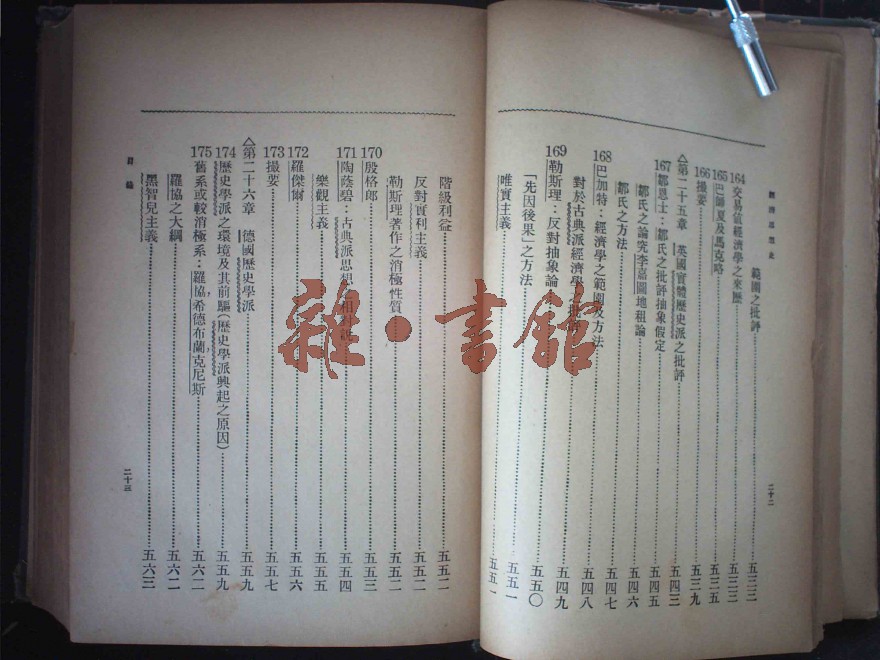 經濟思想史
範圍之批評……五三三
164 交易値經濟學之來歷……五三三
165 巴師夏及馬克略……五三五
166 撮要……五三九
△第二十五章 英國實體歷史派之批評……五四三
167 鄒恩士：鄒氏之批評抽象假定……五四五
鄒氏之論究李嘉圖地租論……五四六
鄒氏之方法……五四七
168 巴加特：經濟學之範圍及方法……五四八
對於古典派經濟學
169 勒斯理：反對抽象論……五四九
「先因後果」之方法……五五〇
唯實主義……五五一
二十二
階級利益……五五二
反對實利主義……五五二
勒斯理著作之消極性質……五五二
170 殷格郎……五五三
171 陶蔭碧：古典派思想之相對說……五五四
樂觀主義……五五五
172 羅傑爾……五五六
173 撮要……五五七
△第二十六章 德國歷史學派……五五九
174 歷史學派之環境及其前驅（歷史學派興起之原因）……五五九
175 舊系或較消極系：羅協，希德布蘭，克尼斯……五六二
羅協之大綱……五六二
黑智兒主義……五六三
目錄
二十三
雜·書館